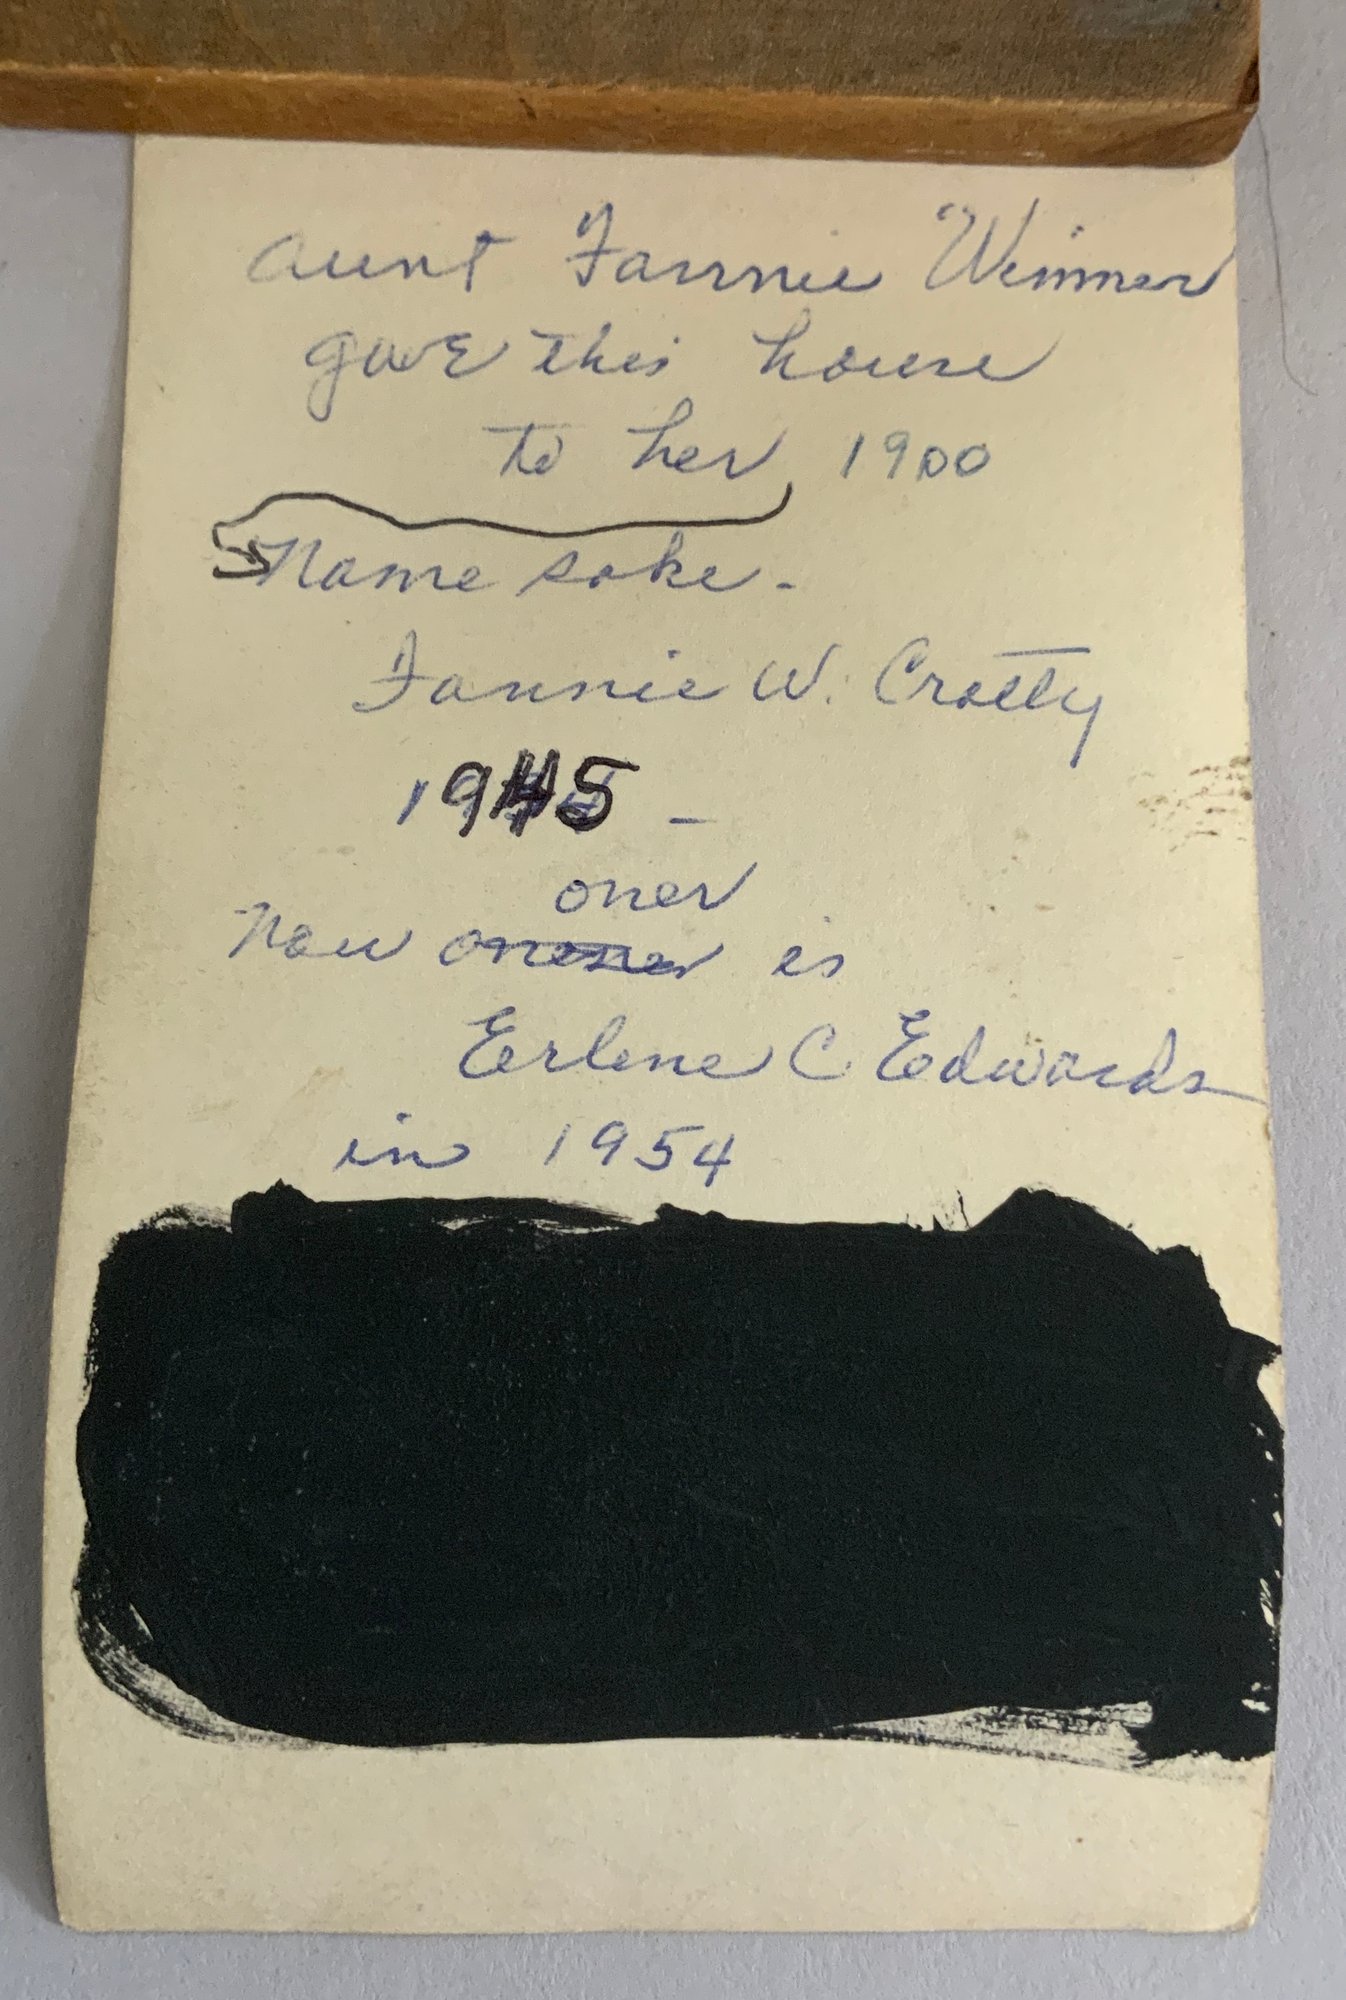 aunt Fannie Wimmer
gave this house
to her 1900
Name sake.
Fannie W. Crotty
1945 -
oner
Now is
Eerlene C Edwards
in 1954